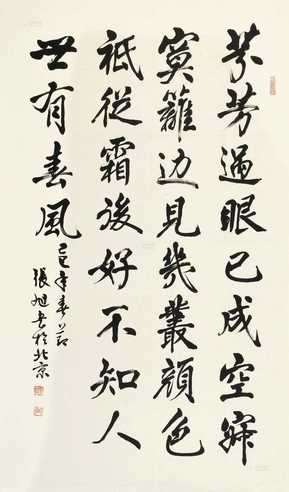 芬芳過眼已成空寂
寞籬边見幾叢顔色
祗從霜後好不知人
世有春風
己丑年春节
張旭光於北京